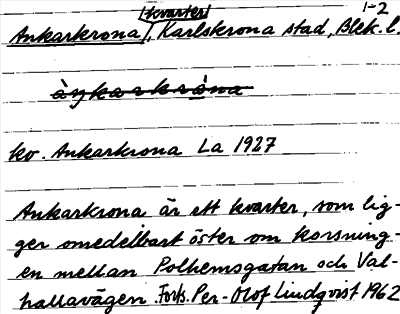 kvarter 1-2
Ankarkrona, Karlskrona stad, Blek. l.
àŋkarkròna
kv. Ankarkrona La 1927
Ankarkrona är ett kvarter, som lig-
ger omedelbart öster om korsning-
en mellan Polhemsgatan och Val-
hallavägen. Forts. Per-Olof Lindqvist 1962